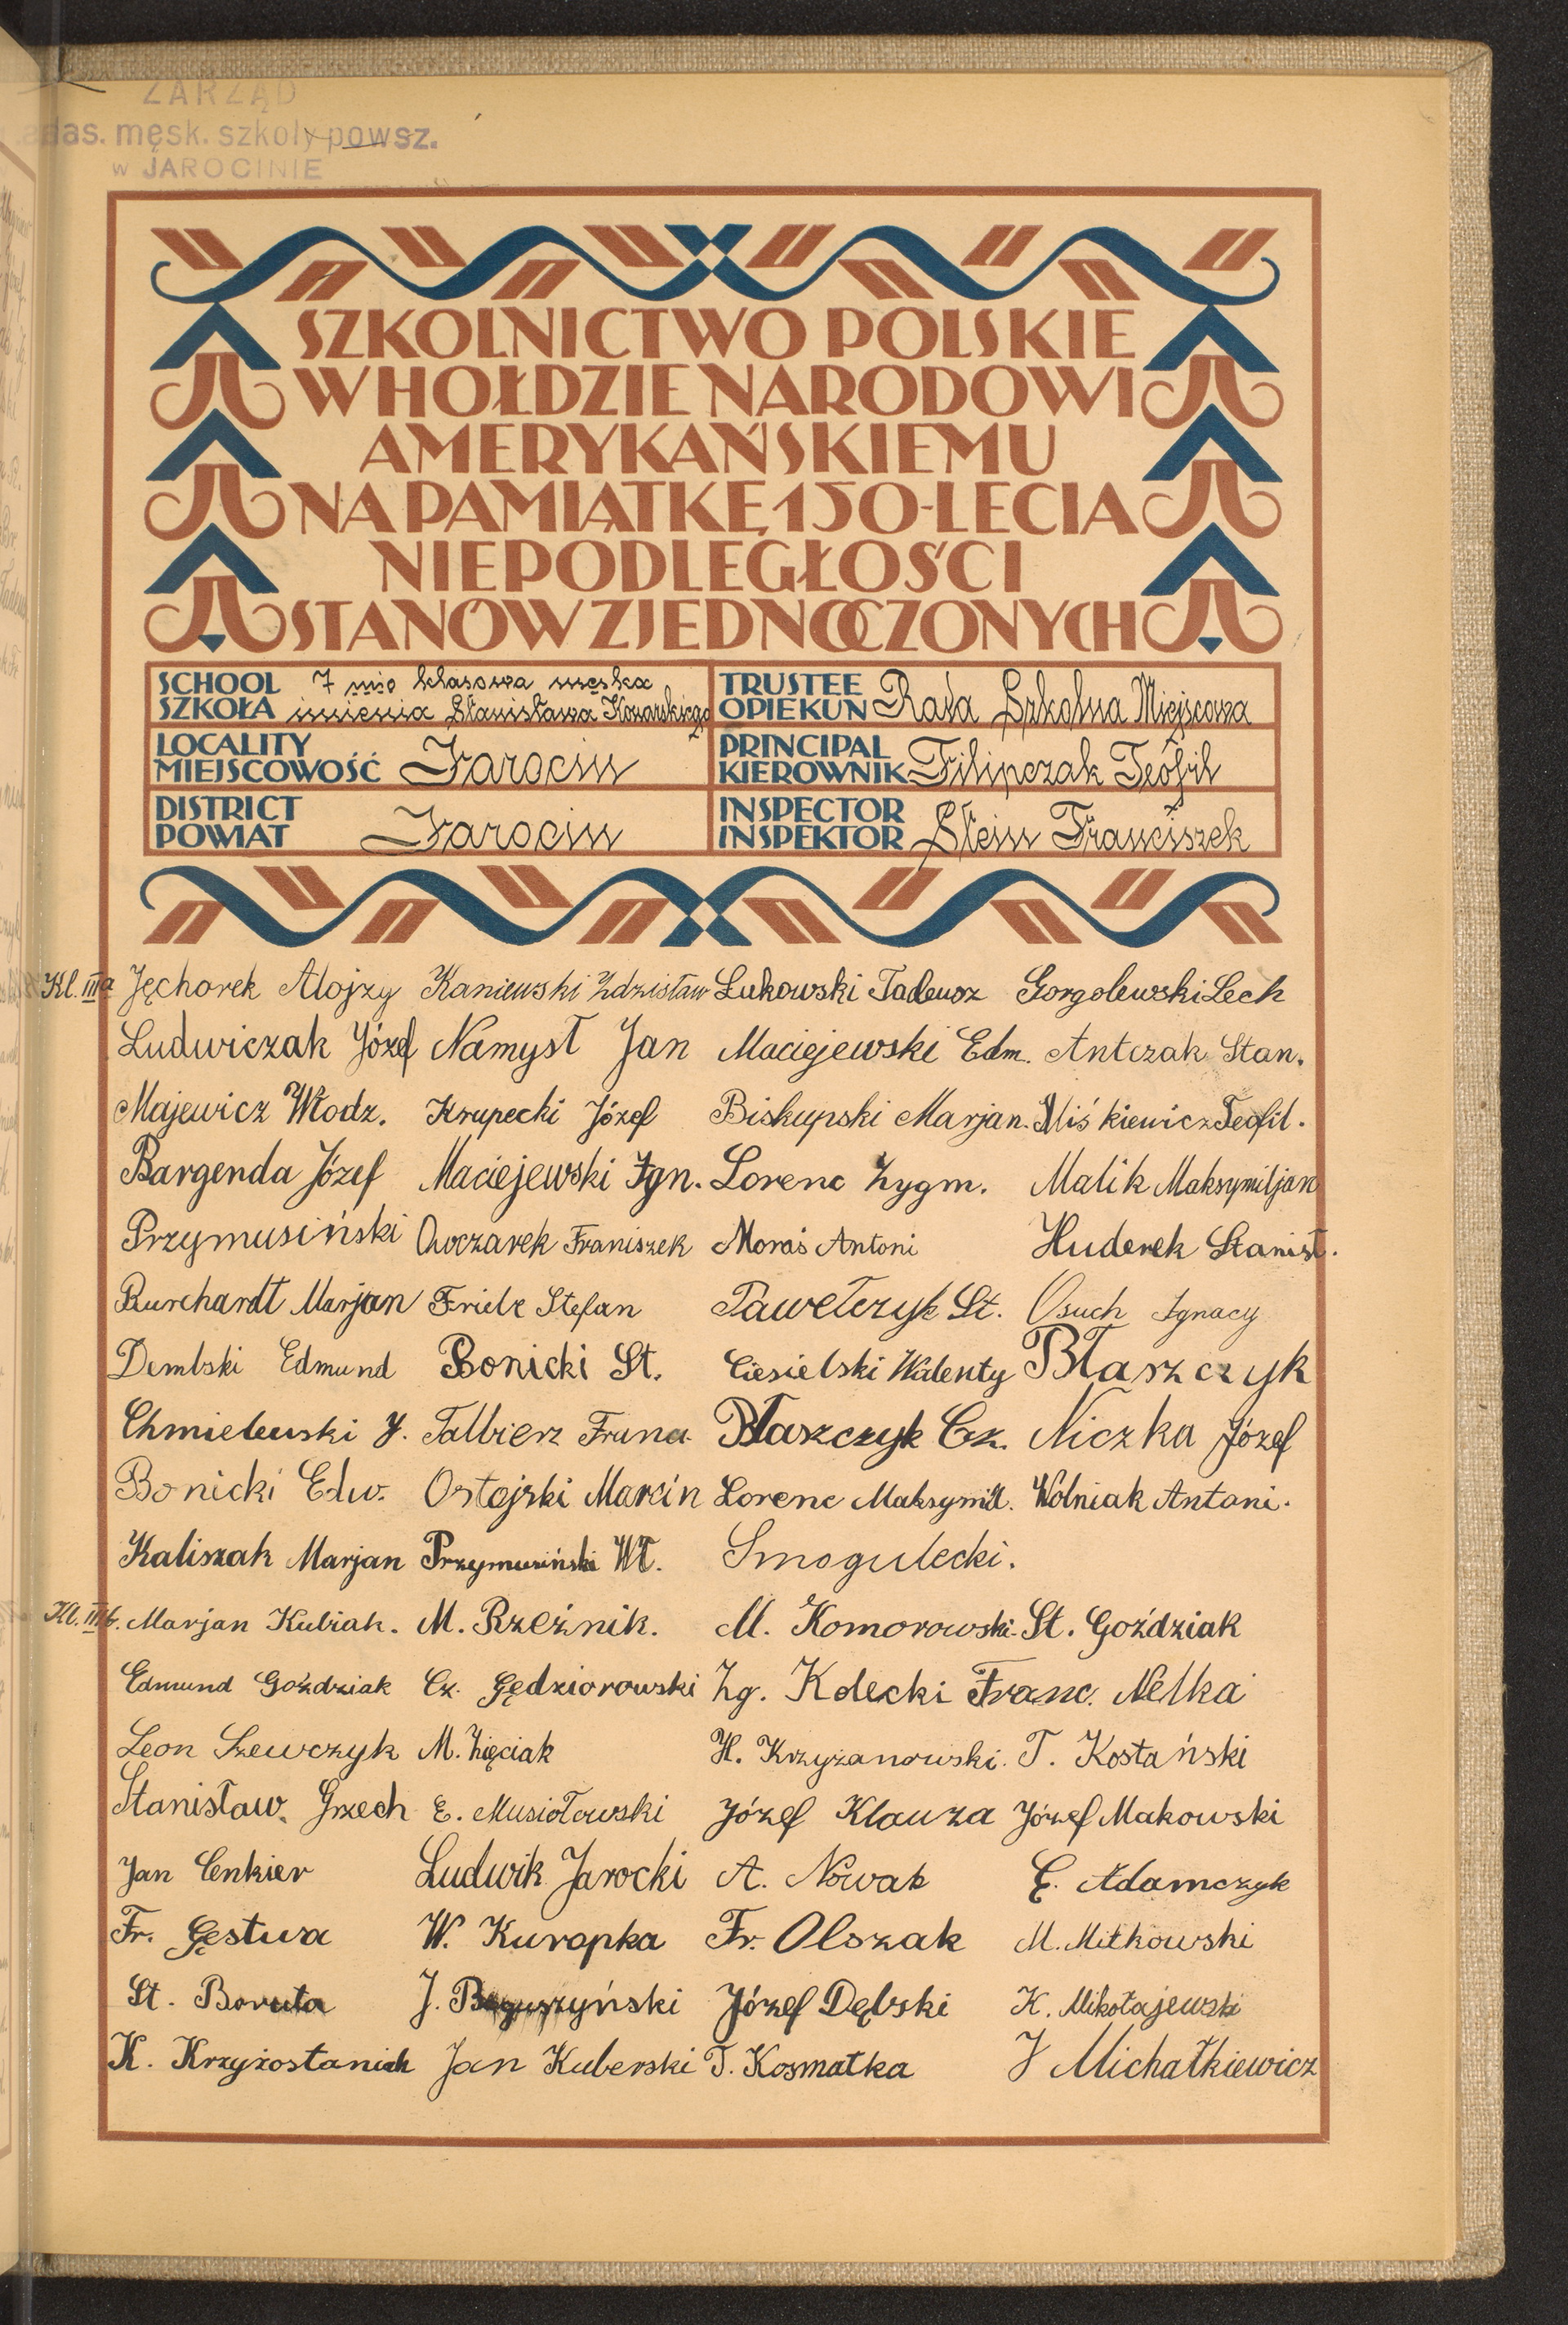 ZARZĄD
męsk. szkoły powsz.
w JAROCINIE
SZKOLNICTWO POLSKIE
W HOŁDZIE NARODOWI
AMERYKAŃSKIEMU
NA PAMIĄTKĘ 150-LECIA
NIEPODLEGŁOŚCI
STANÓW ZJEDNOCZONYCH
SCHOOL SZKOŁA 7 mio klasowa męska imienia Stanisława Konarskiego
TRUSTEE OPIEKUN Rada Szkolna Miejscowa
LOCALITY MIEJSCOWOŚĆ Jarocin
PRINCIPAL KIEROWNIK Filipczak Teofil
DISTRICT POWIAT Jarocin
INSPECTOR INSPEKTOR Stein Franciszek
Kl. IIIa Jęchorek Alojzy Kaniewski Zdzisław Łukowski Tadeusz Gorgolewski Lech
Ludwiczak Józef Namysł Jan Maciejewski Edm. Antczak Stan.
Majewicz Włodz. Krupecki Józef Biskupski Marjan. Miśkiewicz Teofil.
Bargenda Józef Maciejewski Ign. Lorenc Zygm. Malik Maksymiljan
Przymusiński Owczarek Franiszek Moraś Antoni Huderek Stanisł.
Burchardt Marjan Frielz Stefan Pawełczyk St. Osuch Ignacy
Dembski Edmund Bonicki St. Ciesielski Walenty Błaszczyk
Chmielewski J. Talbierz Franc. Błaszczyk Cz. Niczka Józef
Bonicki Edw. Ostojski Marcin Lorenc Maksymil. Wolniak Antoni.
Kaliszak Marjan Przymusiński Wł. Smogulecki.
Kl. IIIb. Marjan Kubiak. M. Rzeźnik. M. Komorowski. St. Goździak
Edmund Goździak Cz. Gędziorowski Zg. Kolecki Franc. Nelka
Leon Szewczyk M. Zięciak H. Krzyżanowski. T. Kostański
Stanisław. Grzech E. Musiołowski Józef Klauza Józef Makowski
Jan Cenkier Ludwik Jarocki A. Nowak Adamczyk
Fr. Gęstwa W. Kuropka Fr. Olszak M. Mitkowski
St. Boruta J. Józef Dębski K. Mikołajewski
K. Krzyżostaniak Jan Kuberski T. Kosmatka J Michałkiewicz